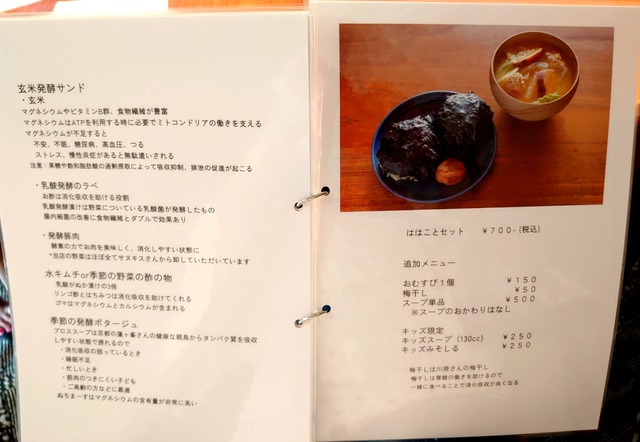 玄米発酵サンド
・玄米
マグネシウムやビタミンB群、食物繊維が豊富
マグネシウムはATPを利用する時に必要でミトコンドリアの働きを支える
マグネシウムが不足すると
不安、不眠、糖尿病、高血圧、つる
ストレス、慢性炎症があると無駄遣いされる
注意：果糖や飽和脂肪酸の過剰摂取によって吸収抑制、排泄の促進が起こる
・乳酸発酵のラペ
お酢は消化吸収を助ける役割
乳酸発酵漬けは野菜についている乳酸菌が発酵したもの
腸内細菌の改善に食物繊維とダブルで効果あり
・発酵豚肉
酵素の力でお肉を美味しく、消化しやすい状態に
*当店の野菜はほぼ全てサヌキスさんから卸していただいています
水キムチor季節の野菜の酢の物
乳酸がぬか漬けの3倍
リンゴ酢とはちみつは消化吸収を助けてくれる
ゴマはマグネシウムとカルシウムが含まれる
季節の発酵ポタージュ
ブロススープは京都の蓮ヶ峯さんの健康な親鳥からタンパク質を吸収
しやすい状態で摂れるので
・消化吸収の弱っているとき
・睡眠不足
・忙しいとき
・筋肉のつきにくい子ども
・ご高齢の方などに最適
ぬちまーすはマグネシウムの含有量が非常に高い
ははことセット ￥700-(税込)
追加メニュー
おむすび1個 ￥150
梅干し ￥50
スープ単品 ￥500
※スープのおかわりはなし
キッズ限定
キッズスープ(130cc) ￥250
キッズみそしる ￥250
梅干しは川原さんの梅干し
梅干しは胃酸の働きを助けるので
一緒に食べることで消化吸収が良くなる